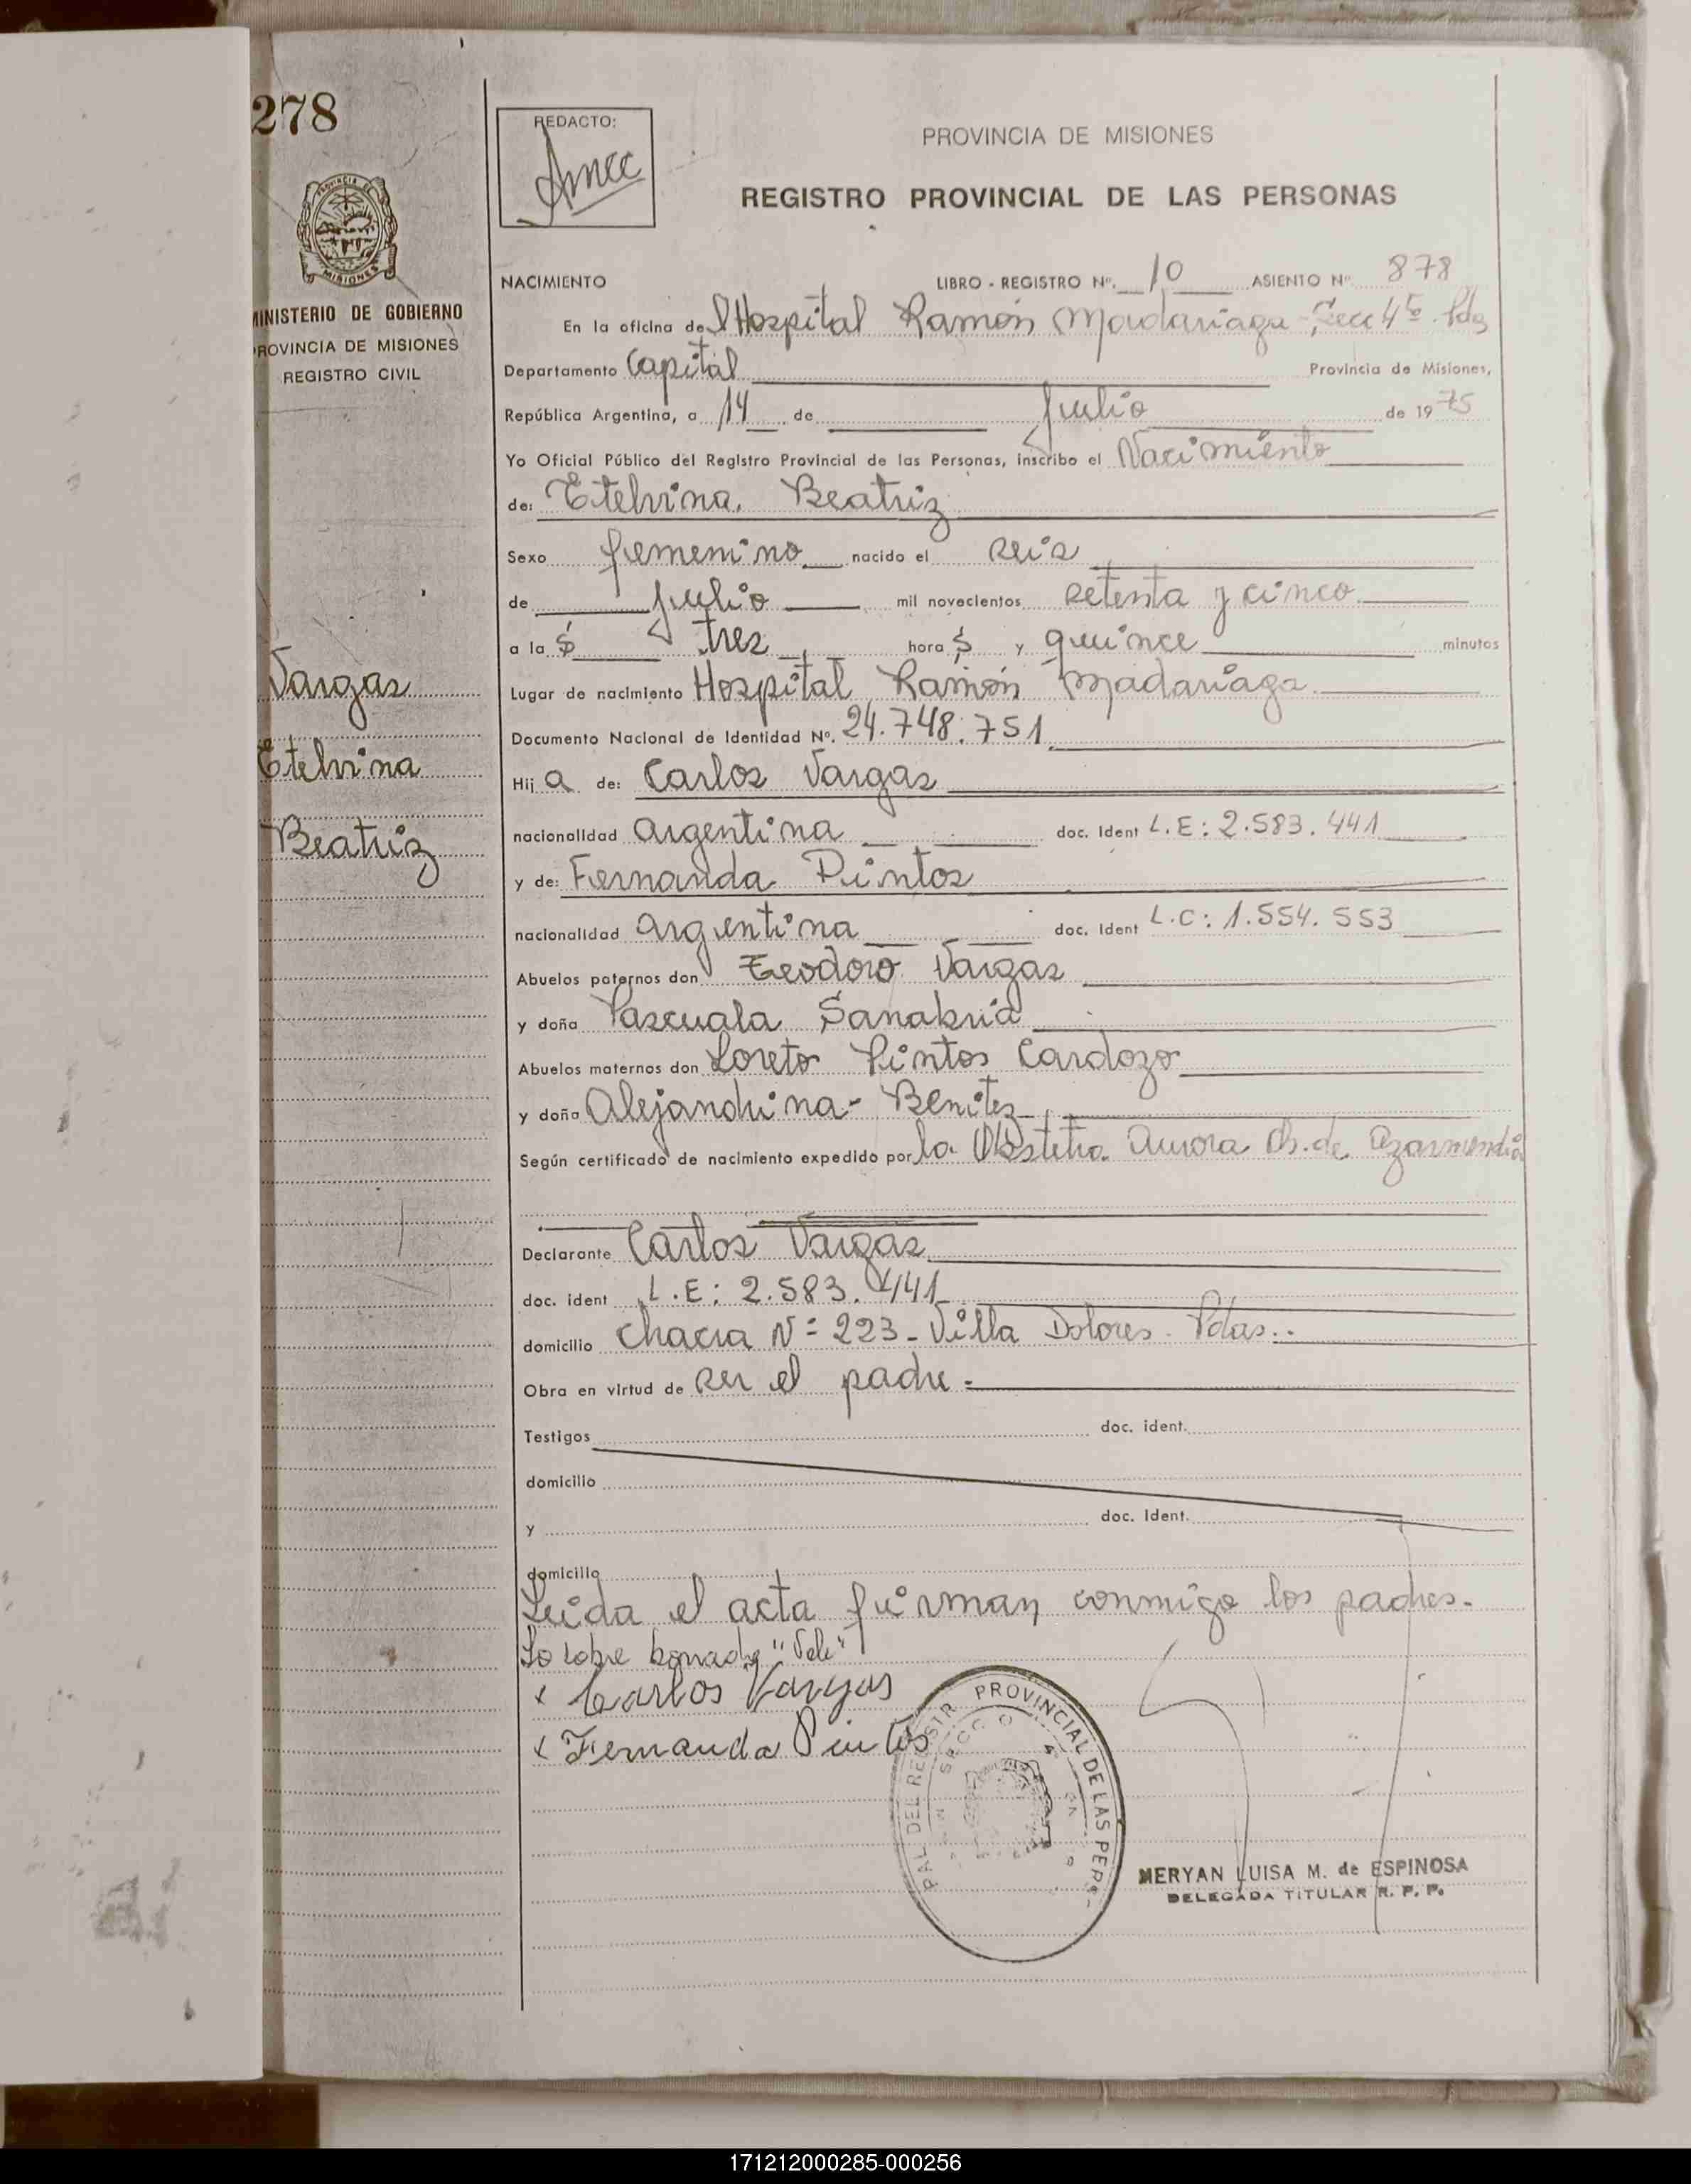 278
REDACTO:
PROVINCIA DE MISIONES
REGISTRO PROVINCIAL DE LAS PERSONAS
PROVINCIA DE
MISIONES
MINISTERIO DE GOBIERNO
PROVINCIA DE MISIONES
REGISTRO CIVIL
NACIMIENTO LIBRO - REGISTRO Nº. 10 ASIENTO Nº 878
En la oficina del Hospital Ramón Madariaga - Secc 4ta Pdas
Departamento Capital Provincia de Misiones,
República Argentina, a 14 de Julio de 1975
Yo Oficial Público del Registro Provincial de las Personas, inscribo el Nacimiento
de: Etelvina Beatriz
Sexo femenino nacido el seis
de julio mil novecientos setenta y cinco
a la s tres hora s y quince minutos
Lugar de nacimiento Hospital Ramón Madariaga
Documento Nacional de Identidad Nº. 24.748.751
Hij a de: Carlos Vargas
nacionalidad argentina doc. Ident L.E: 2.583.441
y de: Fernanda Pintos
nacionalidad argentina doc. Ident L.C: 1.554.553
Abuelos paternos don Teodoro Vargas
y doña Pascuala Sanabria
Abuelos maternos don Loreto Pintos Cardozo
y doña Alejandrina - Benitez
Según certificado de nacimiento expedido por la Obstetra Aurora Ch. de Azarmendia
Declarante Carlos Vargas
doc. ident L.E: 2.583.441
domicilio chacra Nº 223 - Villa Dolores - Pdas.
Obra en virtud de ser el padre.
Testigos doc. ident.
domicilio
y doc. Ident.
domicilio
Leida el acta firman conmigo los padres.
Lo sobre borrado "Vale"
x Carlos Vargas
x Fernanda Pintos
Vargas
Etelvina
Beatriz
PROVINCIAL DE LAS PERS
MERYAN LUISA M. de ESPINOSA
DELEGADA TITULAR R. P. P.
171212000285-000256